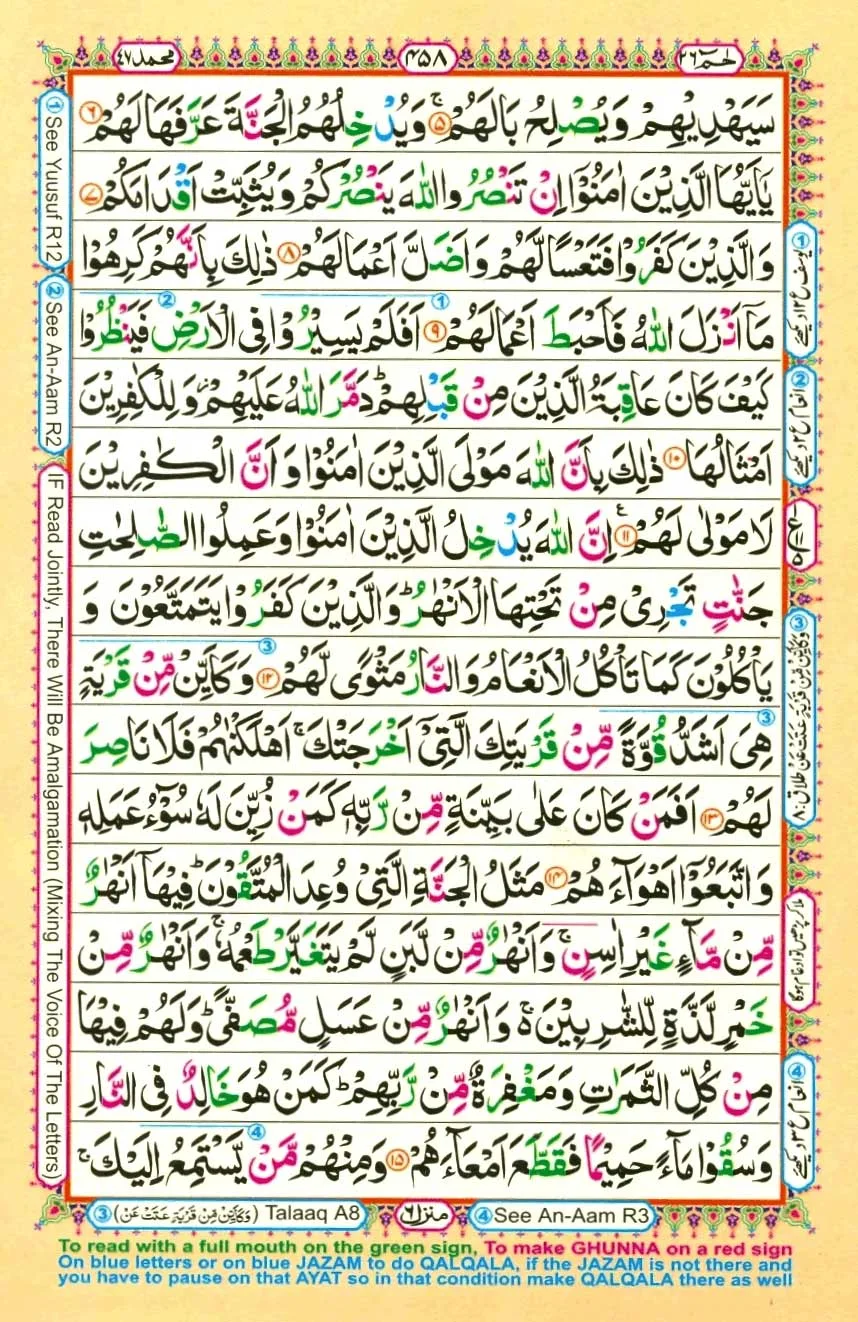 محمد ٤٧
٤٥٨
حٰمٓ ٢٦
سَيَهْدِيْهِمْ وَيُصْلِحُ بَالَهُمْ ۚ ۵ وَيُدْخِلُهُمُ الْجَنَّةَ عَرَّفَهَا لَهُمْ ۶
يٰۤاَيُّهَا الَّذِيْنَ اٰمَنُوْۤا اِنْ تَنْصُرُوا اللّٰهَ يَنْصُرْكُمْ وَيُثَبِّتْ اَقْدَامَكُمْ ۷
وَالَّذِيْنَ كَفَرُوْا فَتَعْسًا لَّهُمْ وَاَضَلَّ اَعْمَالَهُمْ ۸ ذٰلِكَ بِاَنَّهُمْ كَرِهُوْا
مَاۤ اَنْزَلَ اللّٰهُ فَاَحْبَطَ اَعْمَالَهُمْ ۹ اَفَلَمْ يَسِيْرُوْا فِى الْاَرْضِ فَيَنْظُرُوْا
كَيْفَ كَانَ عَاقِبَةُ الَّذِيْنَ مِنْ قَبْلِهِمْ ؕ دَمَّرَ اللّٰهُ عَلَيْهِمْ ؗ وَلِلْكٰفِرِيْنَ
اَمْثَالُهَا ۱۰ ذٰلِكَ بِاَنَّ اللّٰهَ مَوْلَى الَّذِيْنَ اٰمَنُوْا وَاَنَّ الْكٰفِرِيْنَ
لَا مَوْلٰى لَهُمْ ۱۱ اِنَّ اللّٰهَ يُدْخِلُ الَّذِيْنَ اٰمَنُوْا وَعَمِلُوا الصّٰلِحٰتِ
جَنّٰتٍ تَجْرِىْ مِنْ تَحْتِهَا الْاَنْهٰرُ ؕ وَالَّذِيْنَ كَفَرُوْا يَتَمَتَّعُوْنَ وَ
يَاْكُلُوْنَ كَمَا تَاْكُلُ الْاَنْعَامُ وَالنَّارُ مَثْوًى لَّهُمْ ۱۲ وَكَاَيِّنْ مِّنْ قَرْيَةٍ
هِىَ اَشَدُّ قُوَّةً مِّنْ قَرْيَتِكَ الَّتِىْۤ اَخْرَجَتْكَ ۚ اَهْلَكْنٰهُمْ فَلَا نَاصِرَ
لَهُمْ ۱۳ اَفَمَنْ كَانَ عَلٰى بَيِّنَةٍ مِّنْ رَّبِّهٖ كَمَنْ زُيِّنَ لَهٗ سُوْٓءُ عَمَلِهٖ
وَاتَّبَعُوْۤا اَهْوَآءَهُمْ ۱۴ مَثَلُ الْجَنَّةِ الَّتِىْ وُعِدَ الْمُتَّقُوْنَ ؕ فِيْهَاۤ اَنْهٰرٌ
مِّنْ مَّآءٍ غَيْرِ اٰسِنٍ ۚ وَاَنْهٰرٌ مِّنْ لَّبَنٍ لَّمْ يَتَغَيَّرْ طَعْمُهٗ ۚ وَاَنْهٰرٌ مِّنْ
خَمْرٍ لَّذَّةٍ لِّلشّٰرِبِيْنَ ۚ وَاَنْهٰرٌ مِّنْ عَسَلٍ مُّصَفًّى ؕ وَلَهُمْ فِيْهَا
مِنْ كُلِّ الثَّمَرٰتِ وَمَغْفِرَةٌ مِّنْ رَّبِّهِمْ ؕ كَمَنْ هُوَ خَالِدٌ فِى النَّارِ
وَسُقُوْا مَآءً حَمِيْمًا فَقَطَّعَ اَمْعَآءَهُمْ ۱۵ وَمِنْهُمْ مَّنْ يَّسْتَمِعُ اِلَيْكَ ۚ
① See Yuusuf R12
② See An-Aam R2
IF Read Jointly, There Will Be Amalgamation (Mixing The Voice Of The Letters)
① یوسف ع ۱۲ دیکھئے
② انعام ع ۲ دیکھئے
③ وَكَاَيِّنْ مِّنْ قَرْيَةٍ عَتَتْ عَنْ طلاق: ۸
ملا کر پڑھیں تو ادغام ہوگا
④ انعام ع ۳ دیکھئے
③ (وَكَاَيِّنْ مِّنْ قَرْيَةٍ عَتَتْ عَنْ) Talaaq A8
منزل ٦
④ See An-Aam R3
To read with a full mouth on the green sign, To make GHUNNA on a red sign
On blue letters or on blue JAZAM to do QALQALA, if the JAZAM is not there and
you have to pause on that AYAT so in that condition make QALQALA there as well